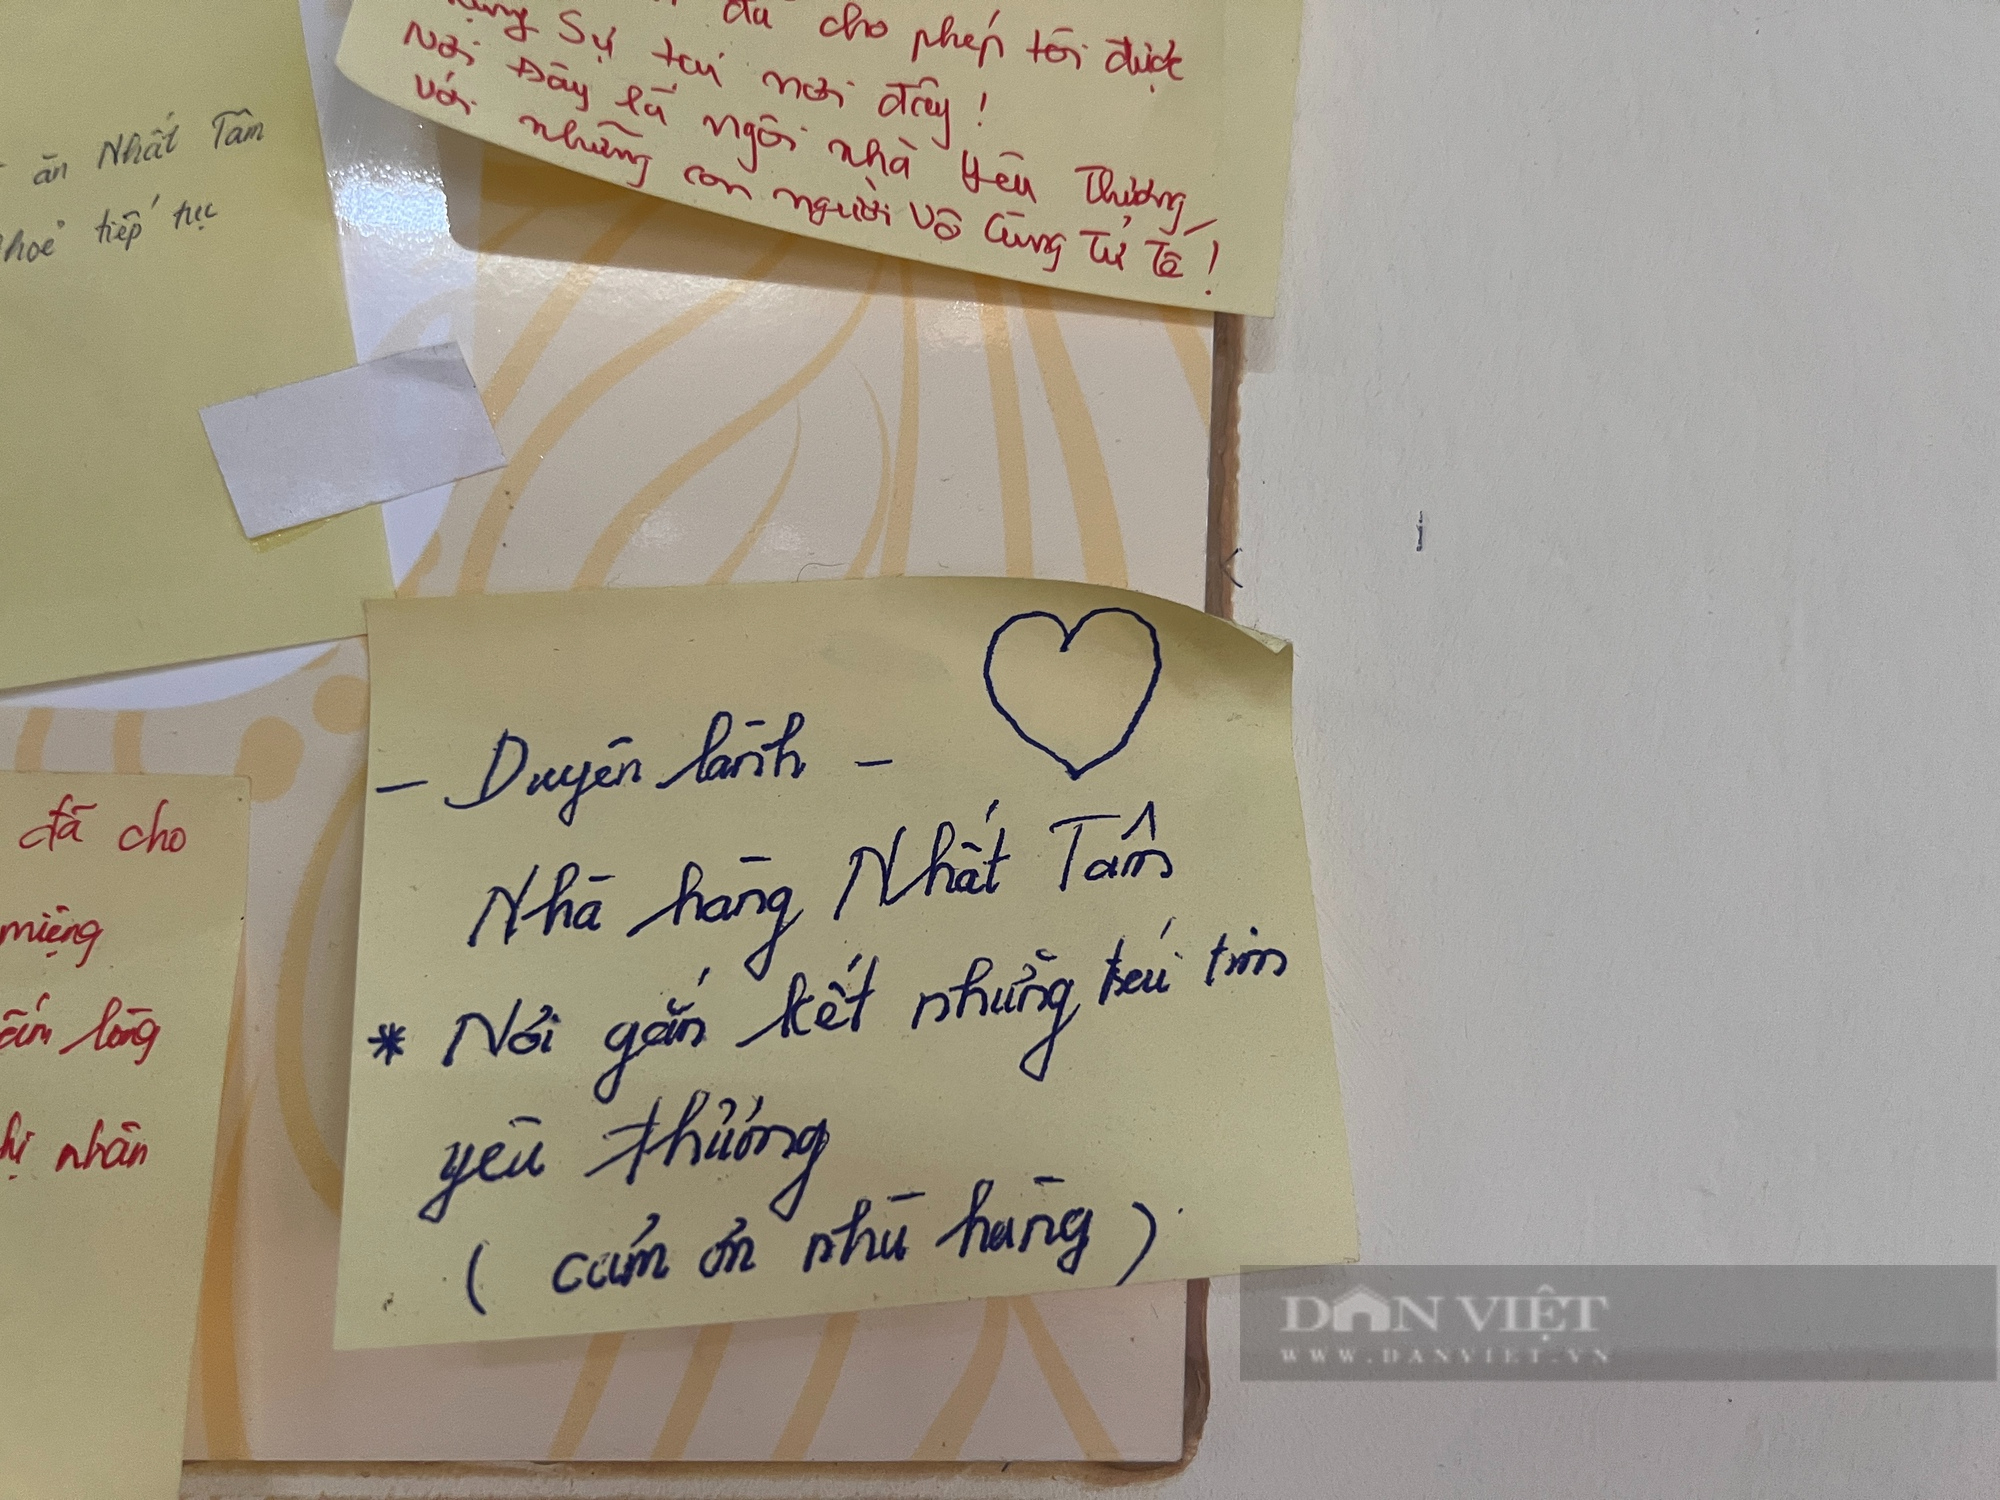 đã cho phép tôi được
Sự tại nơi đây!
Nơi Đây là ngôi nhà Yêu Thương
với những con người vô Cùng Tử Tế!
ăn Nhất Tâm
tiếp tục
- Duyên lành -
Nhà hàng Nhất Tâm
* Nơi gắn kết những trái tim
yêu thương
( cảm ơn nhà hàng )
đã cho
miệng
lòng
nhân
DÂN VIỆT
WWW.DANVIET.VN